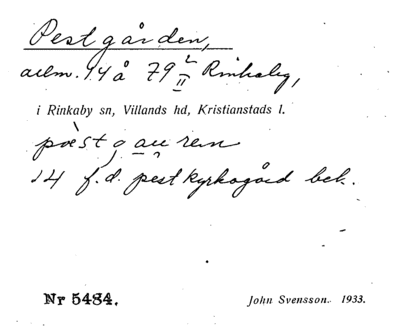 Pestgården,
allm. 14 å 79 L/II Rinkaby,
i Rinkaby sn, Villands hd, Kristianstads l.
14 f.d. pestkyrkogård bel.
Nr 5484.
John Svensson. 1933.